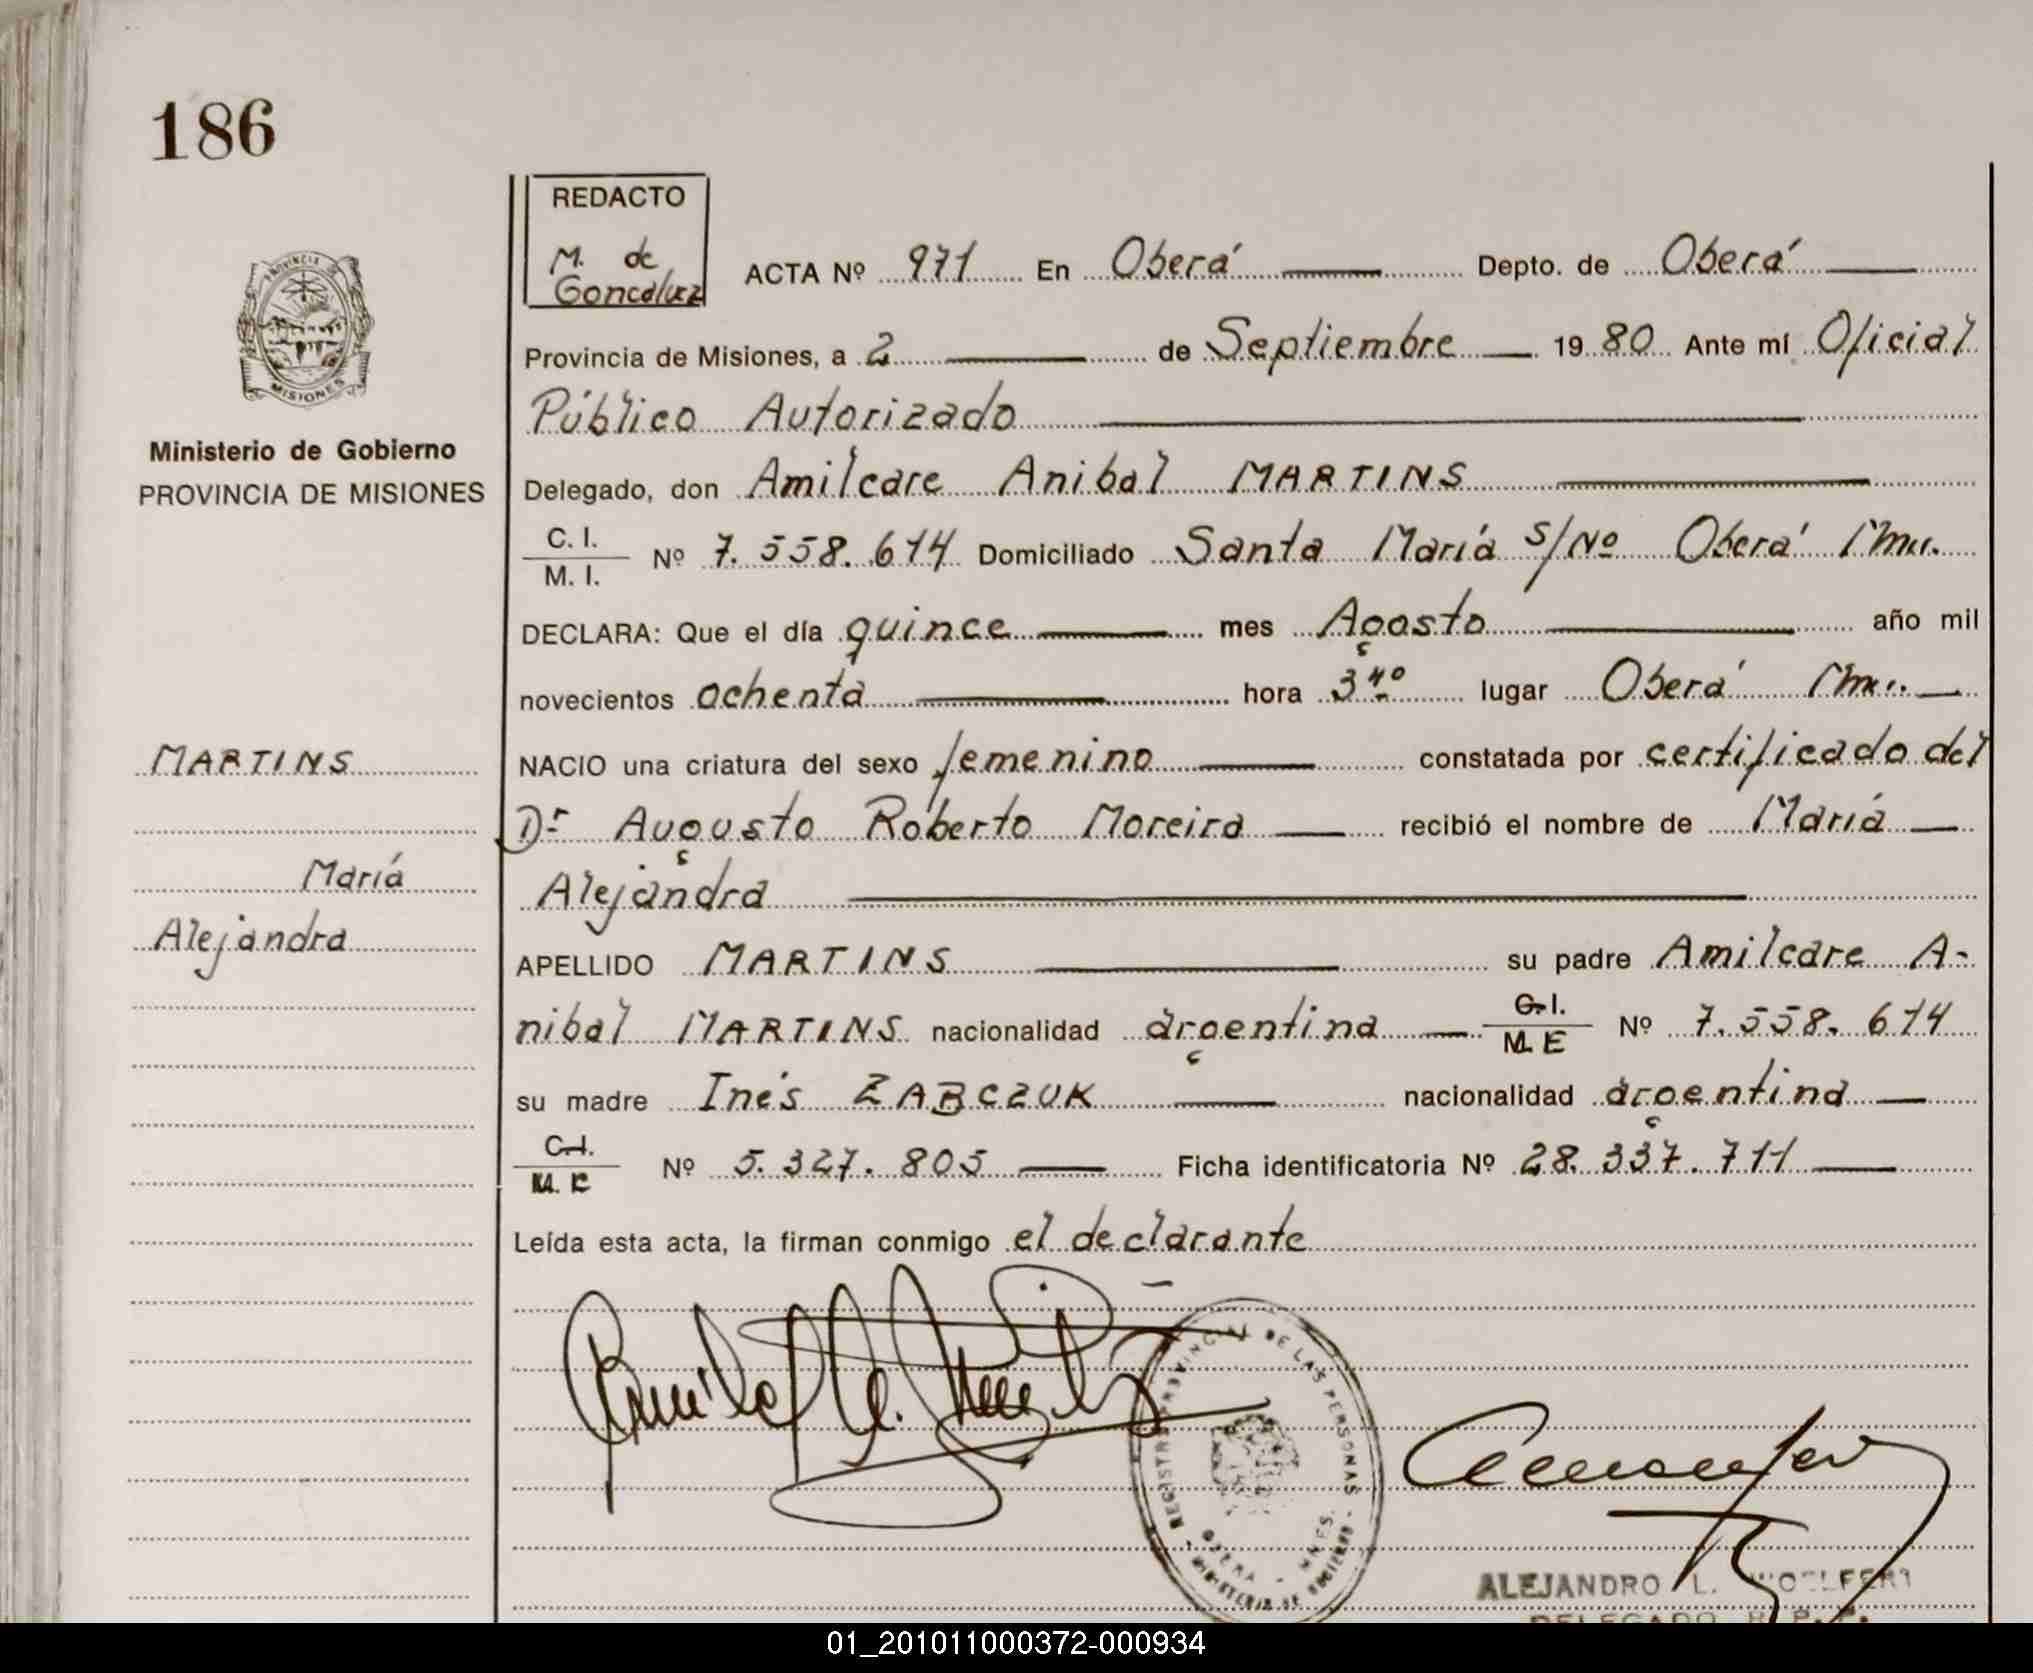 186
REDACTO
M. de
Goncalvez
ACTA Nº 971 En Oberá Depto. de Oberá
Provincia de Misiones, a 2 de Septiembre 1980 Ante mí Oficial
Público Autorizado
Ministerio de Gobierno
PROVINCIA DE MISIONES
Delegado, don Amilcare Anibal MARTINS
C. I.
M. I.
Nº 7.558.614 Domiciliado Santa María S/Nº Oberá Mnes.
DECLARA: Que el día quince mes Agosto año mil
novecientos ochenta hora 3 40 lugar Oberá Mnes.
MARTINS
María
Alejandra
NACIO una criatura del sexo femenino constatada por certificado del
Dr Augusto Roberto Moreira recibió el nombre de María
Alejandra
APELLIDO MARTINS su padre Amilcare A-
nibal MARTINS nacionalidad argentina C.I. M. E Nº 7.558.614
su madre Inés ZABCZUK nacionalidad argentina
C.I.
Nº 5.327.805 Ficha identificatoria Nº 28.337.711
Leída esta acta, la firman conmigo el declarante
REGISTRO PROVINCIAL DE LAS PERSONAS
OBERA - MNES.
MINISTERIO DE GOBIERNO
ALEJANDRO L. WOELFERT
DELEGADO R. P. P.
PROVINCIA DE
MISIONES
01_201011000372-000934